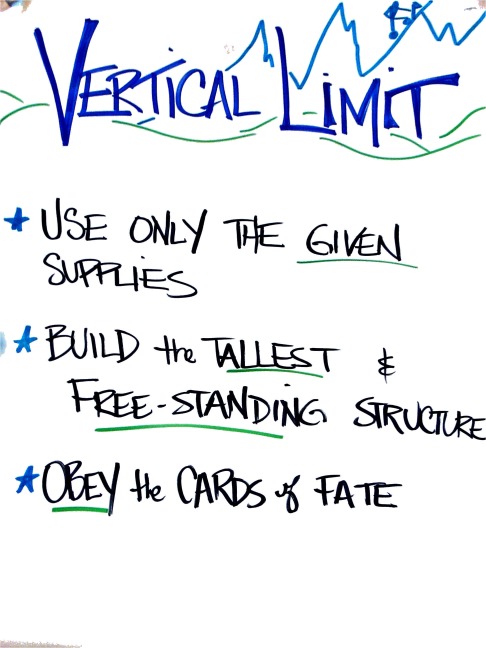 VERTICAL LIMIT
★ USE ONLY THE GIVEN
SUPPLIES
★ BUILD the TALLEST &
FREE-STANDING STRUCTURE
★ OBEY the CARDS of FATE